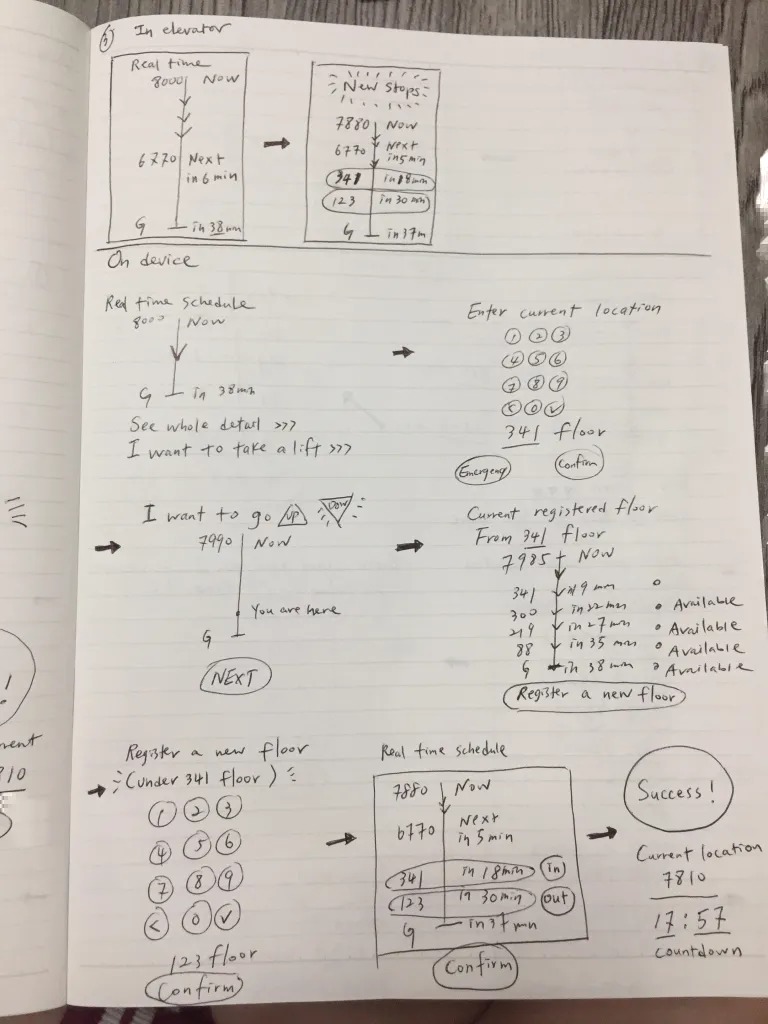 ③ In elevator
Real time
8000 Now
6770 Next
in 6 min
G in 38 min
New Stops
7880 Now
6770 Next
in 5 min
341 in 18 min
123 in 30 min
G in 37 m
On device
Real time schedule
8000 Now
G in 38 min
See whole detail >>>
I want to take a lift >>>
Enter current location
1 2 3
4 5 6
7 8 9
< 0 v
341 floor
Emergency Confirm
I want to go UP DOWN
7990 Now
You are here
G
NEXT
Current registered floor
From 341 floor
7985 Now
341 in 19 min
300 in 22 min Available
219 in 27 min Available
88 in 35 min Available
G in 38 min Available
Register a new floor
Register a new floor
(under 341 floor)
1 2 3
4 5 6
7 8 9
< 0 v
123 floor
Confirm
Real time schedule
7880 Now
6770 Next
in 5 min
341 in 18 min in
123 in 30 min out
G in 37 min
Confirm
Success!
Current location
7810
17:57
countdown
!
810